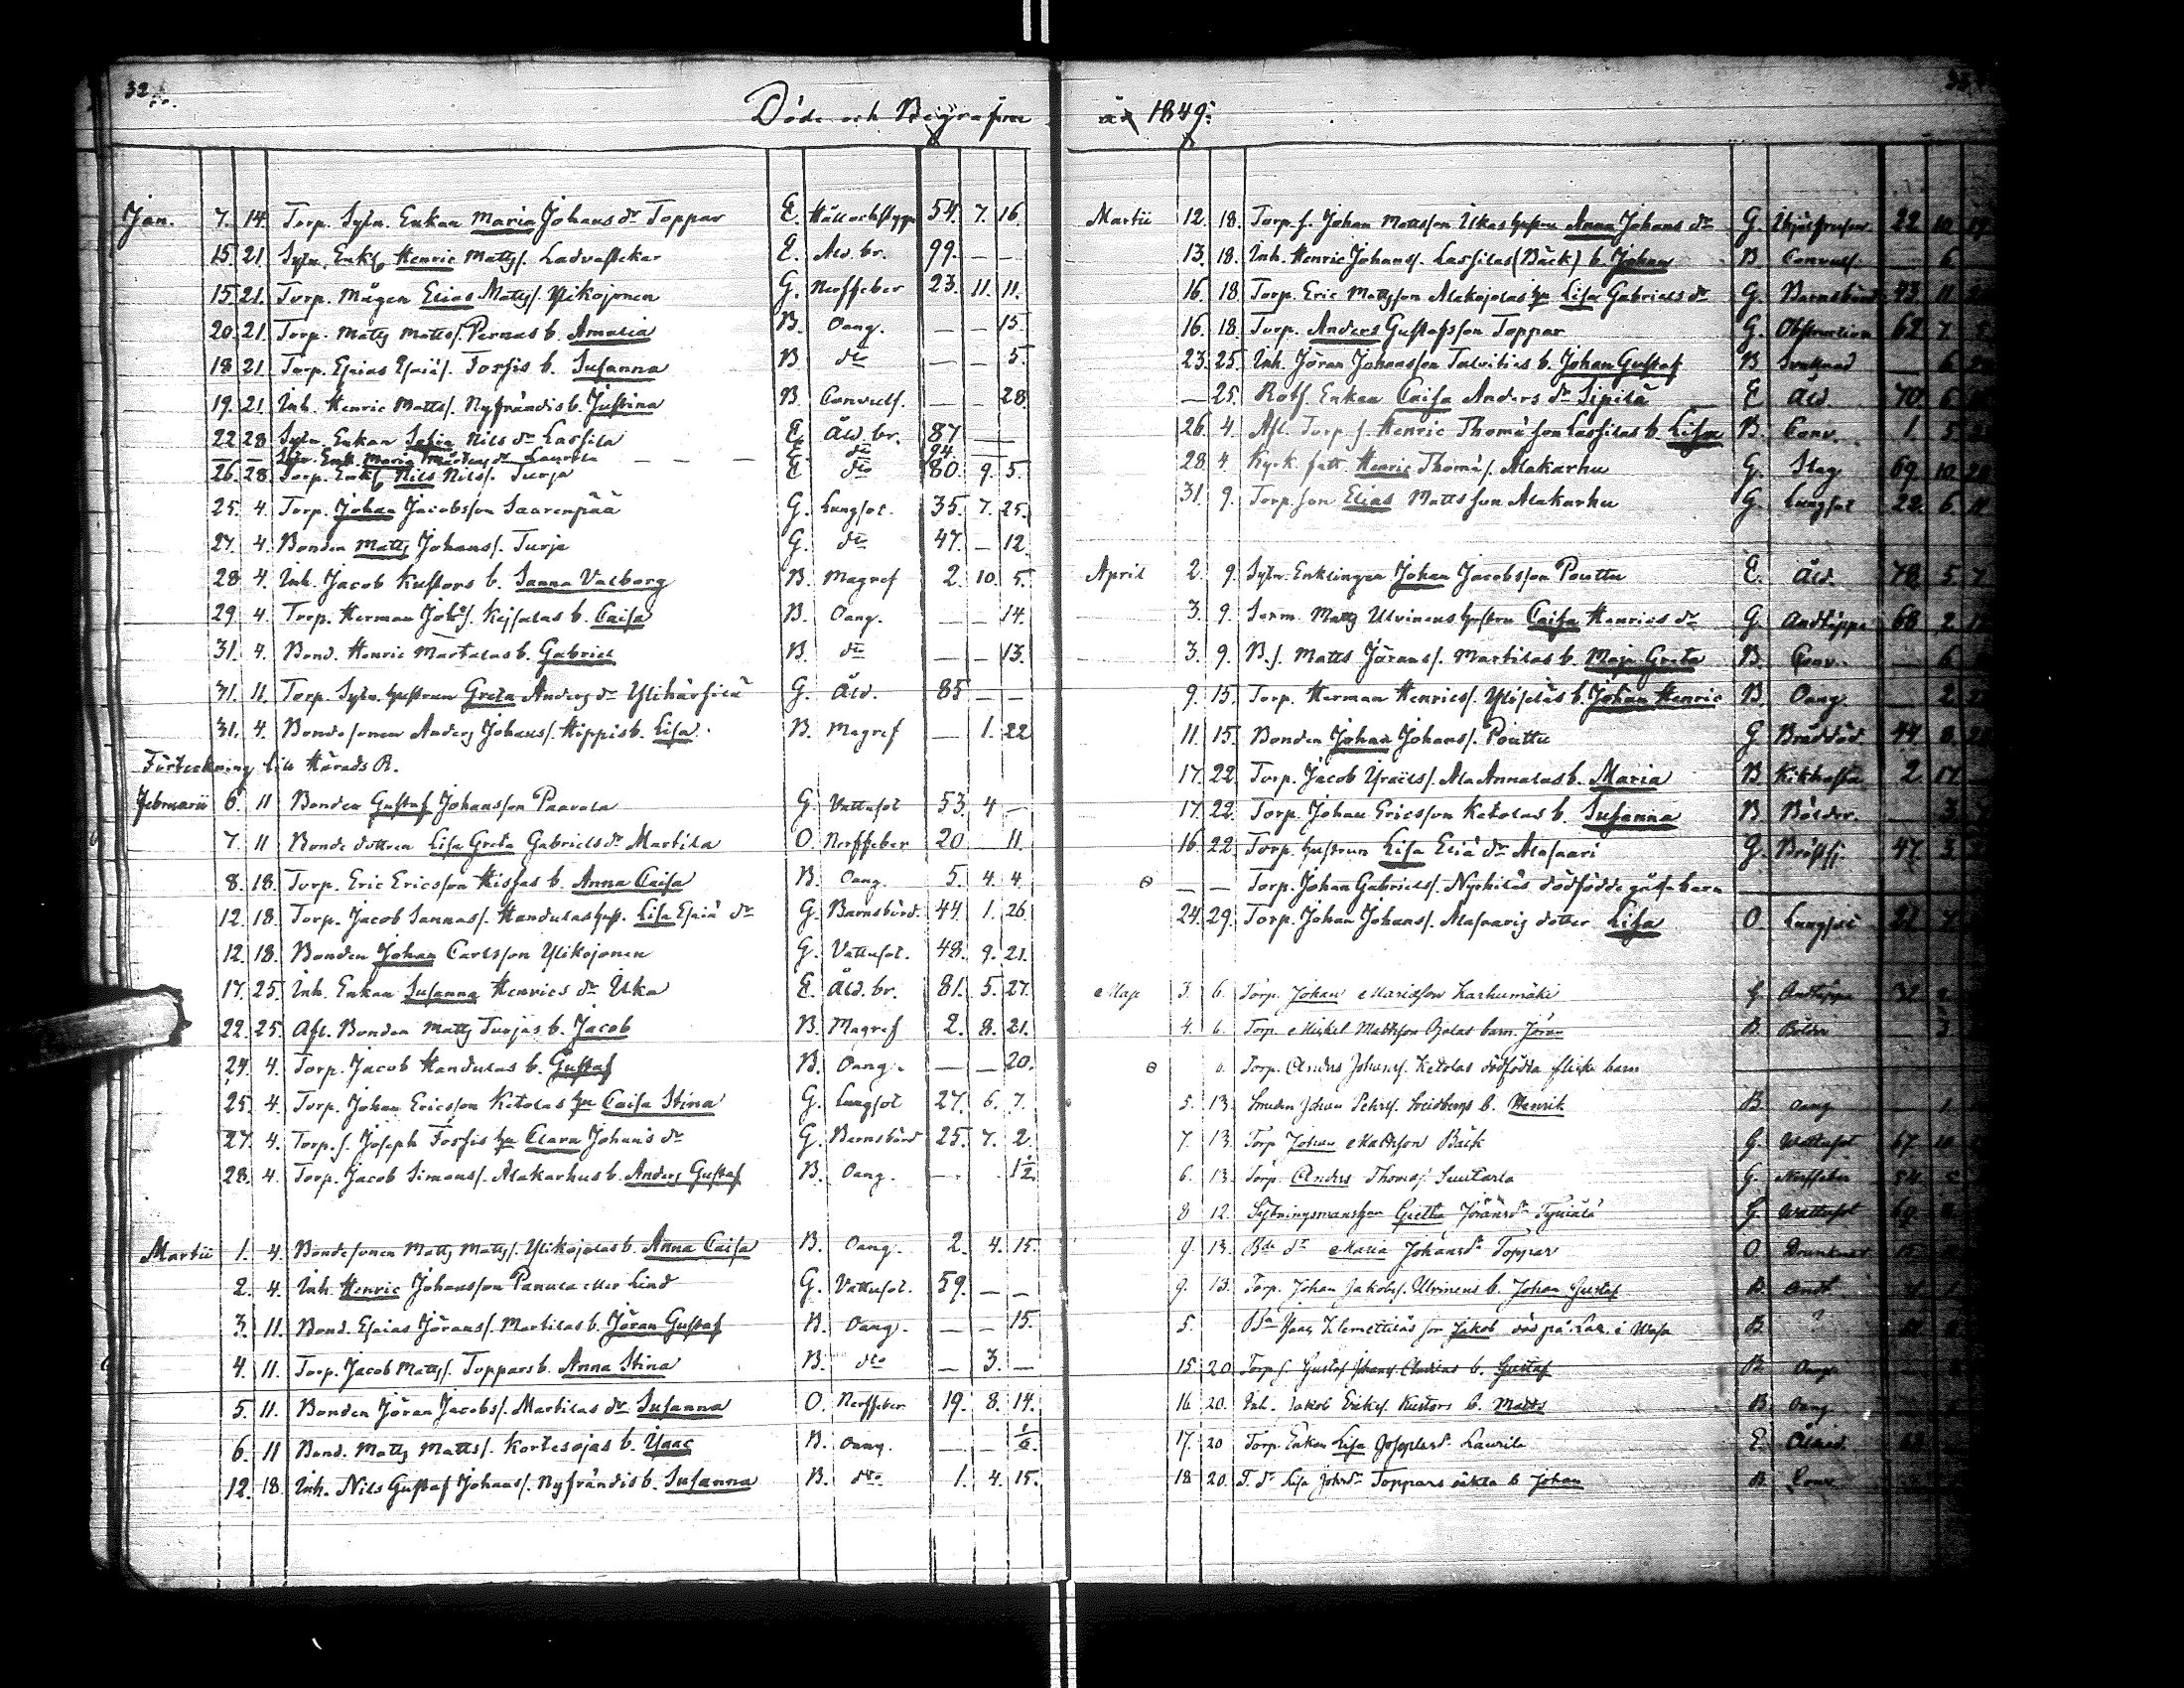 32.
Döde och Begrafne
år 1849.
Jan. 7. 14. Torp. Sytn. Enkan Maria Johans dr Toppar E. Håll och stygn 54. 7. 16.
15. 21. Sytn. Enkl. Henric Matts. Ladvastekar E. Åld. br. 99. — —
15. 21. Torp. Mågen Elias Matts. Ylikojonen G. Nerffeber 23. 11. 11.
20. 21. Torp. Matts Matts. Pernas b. Amalia B. Oang. — — 15.
18. 21. Torp. Esaias Esaiæs. Forsis b. Susanna B. dto — — 5.
19. 21. Inh. Henric Matts. Nyfrändis b. Justina B. Convuls. — — 28
22 28 Sytn. Enkan Sofia Nils dr Lassila E. Åld. br. 87 — —
— — Sytn. Enk. Maria Mårtens dr Laurila — — — E. dto 94. —
26. 28 Torp. Enkl. Nils Nils. Turja E dto 80. 9. 5.
25. 4. Torp. Johan Jacobsson Saarenpää G. Lungsot. 35. 7. 25.
27. 4. Bonden Matts Johans. Turja G. dto 47. — 12.
28 4. Inh. Jacob Kustors b. Sanna Valborg B. Magref 2. 10. 5.
29. 4. Torp. Herman Johs. Keisalas b. Caisa B. Oang. — — 14.
31. 4. Bond. Henric Martalas b. Gabriel B. dto — — 13.
31. 11. Torp. Sytn. hustrun Greta Anders dr Ylihärsilä G. Åld. 85 — —
31. 4. Bondesonen Anders Johans. Hippis b. Lisa. B. Magref — 1. 22
Förteckning till Härads R.
Februarii 6. 11 Bonden Gustaf Johansson Paavola G. Vattusot 53. 4 —
7. 11 Bonde dottren Lisa Greta Gabriels dr Martila O. Nerffeber 20 — 11.
8. 18. Torp. Eric Ericsson Hissas b. Anna Caisa B. Oang. 5. 4. 4
12. 18. Torp. Jacob Sannas. Handulas hust. Lisa Esaiæ dr G. Barnsbörd. 44. 1. 26.
12. 18. Bonden Johan Carlsson Ylikojonen G. Vattusot. 48. 9. 21.
17. 25. Inh. Enkan Susanna Henrics dr Uka E. Åld. br. 81. 5. 27.
22. 25. Afl. Bonden Matts Turjas b. Jacob B. Magref 2. 8. 21.
24. 4. Torp. Jacob Handulas b. Gustaf B. Oang. — — 20.
25. 4. Torp. Johan Ericsson Ketolas hu Caisa Stina G. Lungsot 27. 6. 7.
27. 4. Torp. s. Joseph Forsis hu Clara Johans dr G. Barnsbörd 25. 7. 2.
28. 4. Torp. Jacob Simons. Alakarhus b. Anders Gustaf B. Oang. — . 1/2
Martii 1. 4. Bondesonen Matts Matts. Ylikojolas b. Anna Caisa B. Oang. 2. 4. 15.
2. 4. Inh. Henric Johansson Panula eller Lind G. Vattusot. 59. — —
3. 11. Bond. Esaias Jörans. Martilas b. Jöran Gustaf B. Oang. — — 15.
4. 11. Torp. Jacob Matts. Toppars b. Anna Stina B. dto — 3. —
5. 11. Bonden Jöran Jacobs. Martilas dr Susanna O. Nerffeber 19. 8. 14.
6. 11 Bond. Matts Matts. Kortesojas b. Ysaac B. Oang. — — 1/6.
12. 18. Inh. Nils Gustaf Johans. Nyfrändis b. Susanna B. dto 1. 4. 15.
Martii 12. 18. Torp. s. Johan Mattsson Ukas hustru Anna Johans dr G. 22 10
13. 18. Inh. Henric Johans. Lassilas (Bäck) b. Johan B. Convuls. — 6.
16. 18 Torp. Eric Mattsson Alakojolas hu Lisa Gabriels dr G. Barnsbörd 43. 11
16. 18. Torp. Anders Gustafsson Toppar G. Obstruction 62 7
23. 25. Inh. Jöran Johansson Talvitis b. Johan Gustaf B — 6
— 25. Rotf. Enkan Caisa Anders dr Sipilä E Åld. 70. 6.
26. 4. Afl. Torp. s. Henric Thomæson Lassilas b. Lisa B. Conv. 1. 5
28. 4. Kyrk. fatt. Henric Thomæ s. Alakarhu G. Slag 69. 10
31. 9. Torp. son Elias Mattsson Alakarhu G. Lungsot 22. 6 11
April 2. 9. Sytn. Enklingen Johan Jacobsson Pouttu E. Åld. 78 5 7
3. 9. Torp. Matts Ulvinens hustru Caisa Henrics dr G. Andtäppa 68 2
3. 9. B. s. Matts Jörans. Martilas b. Maja Greta B. Conv. — 6
9. 15. Torp. Herman Henrics. Yliseläs b. Johan Henric B. Oang. — 2
11. 15. Bonden Johan Johans. Pouttu G. Bråddöd. 44. 8
17. 22. Torp. Jacob Ysraels. Ala Annalas b. Maria B. Kikhosta 2 17
17. 22. Torp. Johan Ericsson Ketolas b. Susanna B Bölder. — 3
16. 22. Torp. hustrun Lisa Eliæ dr Alasaari G. Bröstsj. 47 3
— — Torp. Johan Gabriels. Nyrhiläs dödfödde gosse barn
24. 29. Torp. Johan Johans. Alasaaris dotter Lisa O Lungsot
Maji 3. 6. Torp. Johan Mariasson Karhumäki G Andtäppa
4. 6. Torp. Michel Mattsson Ojalas barn Jöran B. Bölder — 3
6. Torp. Anders Johans. Ketolas dödfödda flicke barn
5. 13. Smeden Johan Pehrs. Svedbergs b. Henrik B. Oang — 1
7. 13. Torp Johan Mattsson Bäck G. Wattusot 67. 10
6. 13. Torp. Anders Thomæs. Luutarla G. Nerffeber
8 12. Sytningsmanshu Gretha Jöransdr G. Wattusot 69
9. 13. Bde dr Maria Johansdr Toppar O. Drunknat
9. 13. Torp. Johan Jakobs. Ulvinens b. Johan Gustaf B. Andt.
5. Bde Isaac Klemettiläs son Jakob död på Laz. i Wasa B. ?
15 20 Torp. s. Gustaf Johans. b. Gustaf B. Oang
16 20. Inh. Jakob Eriks. Kustors b. Matts B. Oang
17. 20 Torp. Enkan Lisa Josephsdr Laurila E. Ålderd.
18 20. T. dr Lisa Johsdr Toppars oäkta b Johan B. Conv